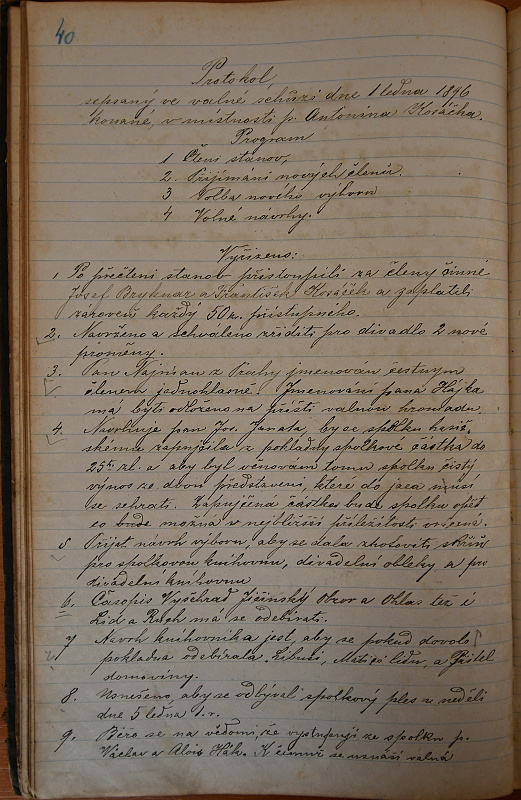 40
Protokol,
sepsaný ve valné schůzi dne 1 ledna 1896
konané, v místnosti p. Antonína Kosáčka.
Program
1 Čtení stanov,
2. Přijímání nových členů.
3 Volba nového výboru
4 Volné návrhy.
Vyřízeno:
1. Po přečtení stanov přistoupili za členy činné
Josef Bryknar a František Kosáček a zaplatili
zároveň každý 50 kr. přístupného.
2. Navrženo a schváleno zříditi pro divadlo 2 nové
proměny.
3. Pan z Prahy jmenován čestným
členem jednohlasně. Jmenování pana Hájka
má býti odloženo na příští valnou hromadu.
4. Navrhuje pan Jos. Janata, by se spolku
skému zapůjčila z pokladny spolkové částka do
25 zl. a aby byl věnován tomu spolku čistý
výnos ze dvou představení, které do jara musí
se sehrati. Zapůjčená částka bude spolku opět
co bude možná v nejbližší příležitosti vrácena.
5 Přijat návrh výboru, aby se dala zhotoviti skříň
pro spolkovou knihovnu, divadelní obleky a pro
divadelní knihovnu
6. Časopis Vyšehrad Jičínský Obzor a Ohlas též i
Lid a Ruch má se odebírati.
7 Návrh knihovníka jest, aby se pokud dovolí
pokladna odebírala Libuši, Matici lidu, a Přítel
domoviny.
8. Usneseno aby se odbýval spolkový ples v neděli
dne 5 ledna t. r.
9. Béře se na vědomí, že vystupují ze spolku p.
Václav a Alois Hák. K čemuž se usnáší valná